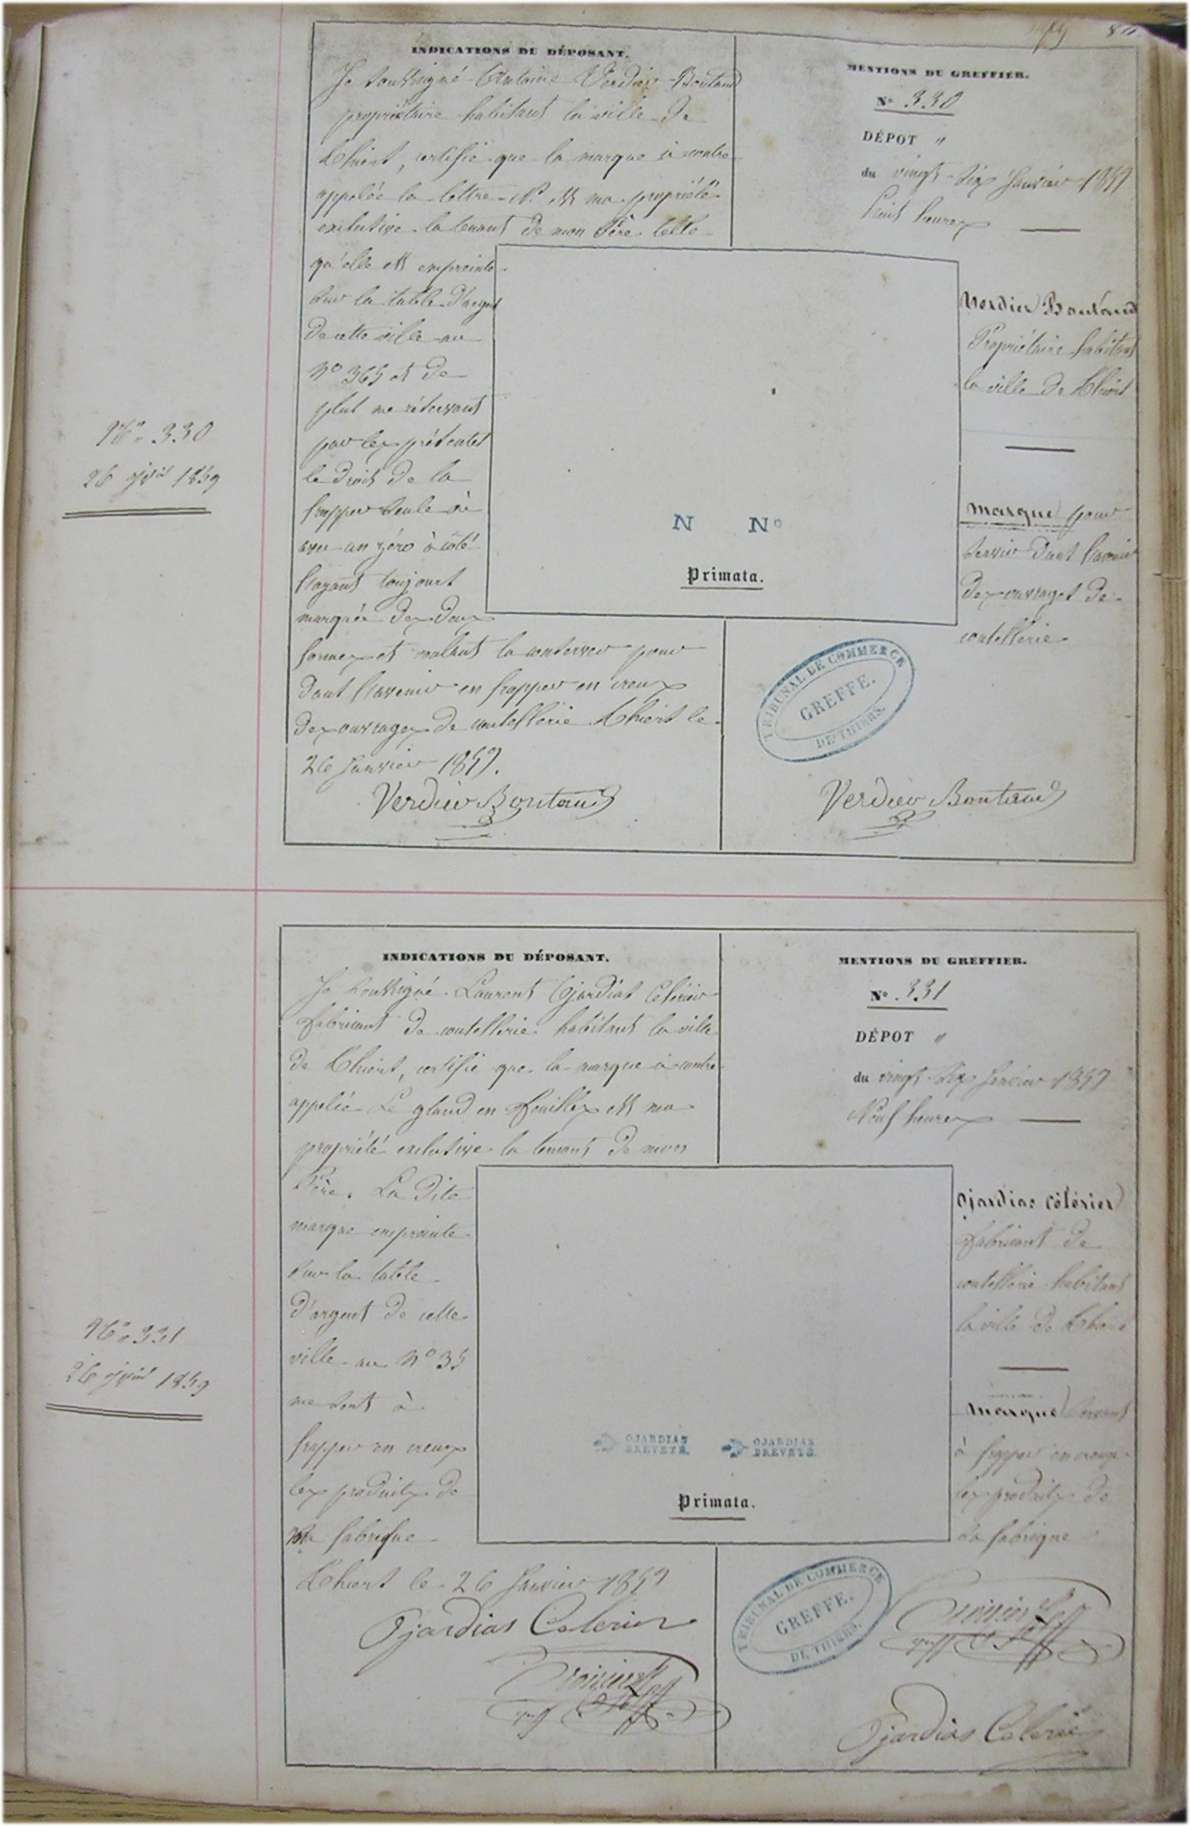 INDICATIONS DU DÉPOSANT.
Je soussigné Antoine Verdier Boutaud
propriétaire habitant la ville de
Thiers, certifie que la marque ci contre
appelée la lettre N. est ma propriété
exclusive la tenant de mon Père telle
qu'elle est empreinte
sur la table d'argent
de cette ville au
No 365 et de
plus me réservant
par les présentes
le droit de la
frapper seule ou
avec un zéro à côté
l'ayant toujours
marquée des deux
formes et voulant la conserver pour
dans l'avenir en frapper en creux
des ouvrages de coutellerie Thiers le
26 Janvier 1859.
Verdier Boutaud
MENTIONS DU GREFFIER.
No 330
DÉPOT "
du vingt-six Janvier 1859
huit heures
Verdier Boutaud
Propriétaire habitant
la ville de Thiers
marque pour
servir dans l'avenir
des ouvrages de
coutellerie
N No
Primata.
TRIBUNAL DE COMMERCE
GREFFE.
DE THIERS.
Verdier Boutaud
No 330
26 jvier 1859
INDICATIONS DU DÉPOSANT.
Je soussigné Laurent Ojardias Célérier
fabricant de coutellerie habitant la ville
de Thiers, certifie que la marque ci contre
appelée Le gland en feuilles est ma
propriété exclusive la tenant de mon
Père. La dite
marque empreinte
sur la table
d'argent de cette
ville au No 35
me sert à
frapper en creux
les produits de
ma fabrique
Thiers le 26 Janvier 1859
Ojardias Celerier
MENTIONS DU GREFFIER.
No 331
DÉPOT "
du vingt-six Janvier 1859
Neuf heures
Ojardias Célérier
fabricant de
coutellerie habitant
la ville de Thiers
marque servant
à frapper en creux
les produits de
sa fabrique
OJARDIAS
BREVETÉ.
OJARDIAS
BREVETÉ.
Primata.
TRIBUNAL DE COMMERCE
GREFFE.
DE THIERS.
Ojardias Celerier
No 331
26 jvier 1859